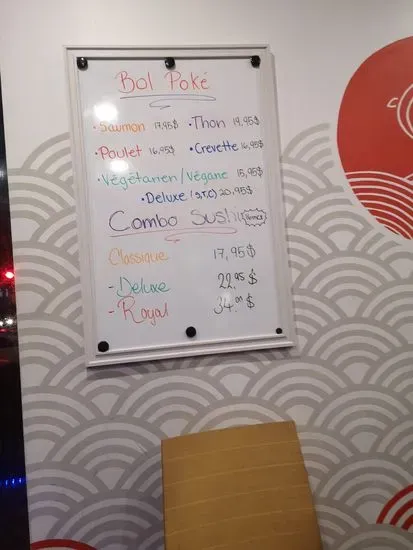 Bol Poké
• Saumon 17,95$ • Thon 19,95$
• Poulet 16,95$ • Crevette 16,95$
• Végétarien/Végane 15,95$
• Deluxe (S,T,C) 20,95$
Combo Sushi
Classique 17,95$
- Deluxe 22,95$
- Royal 34,00$